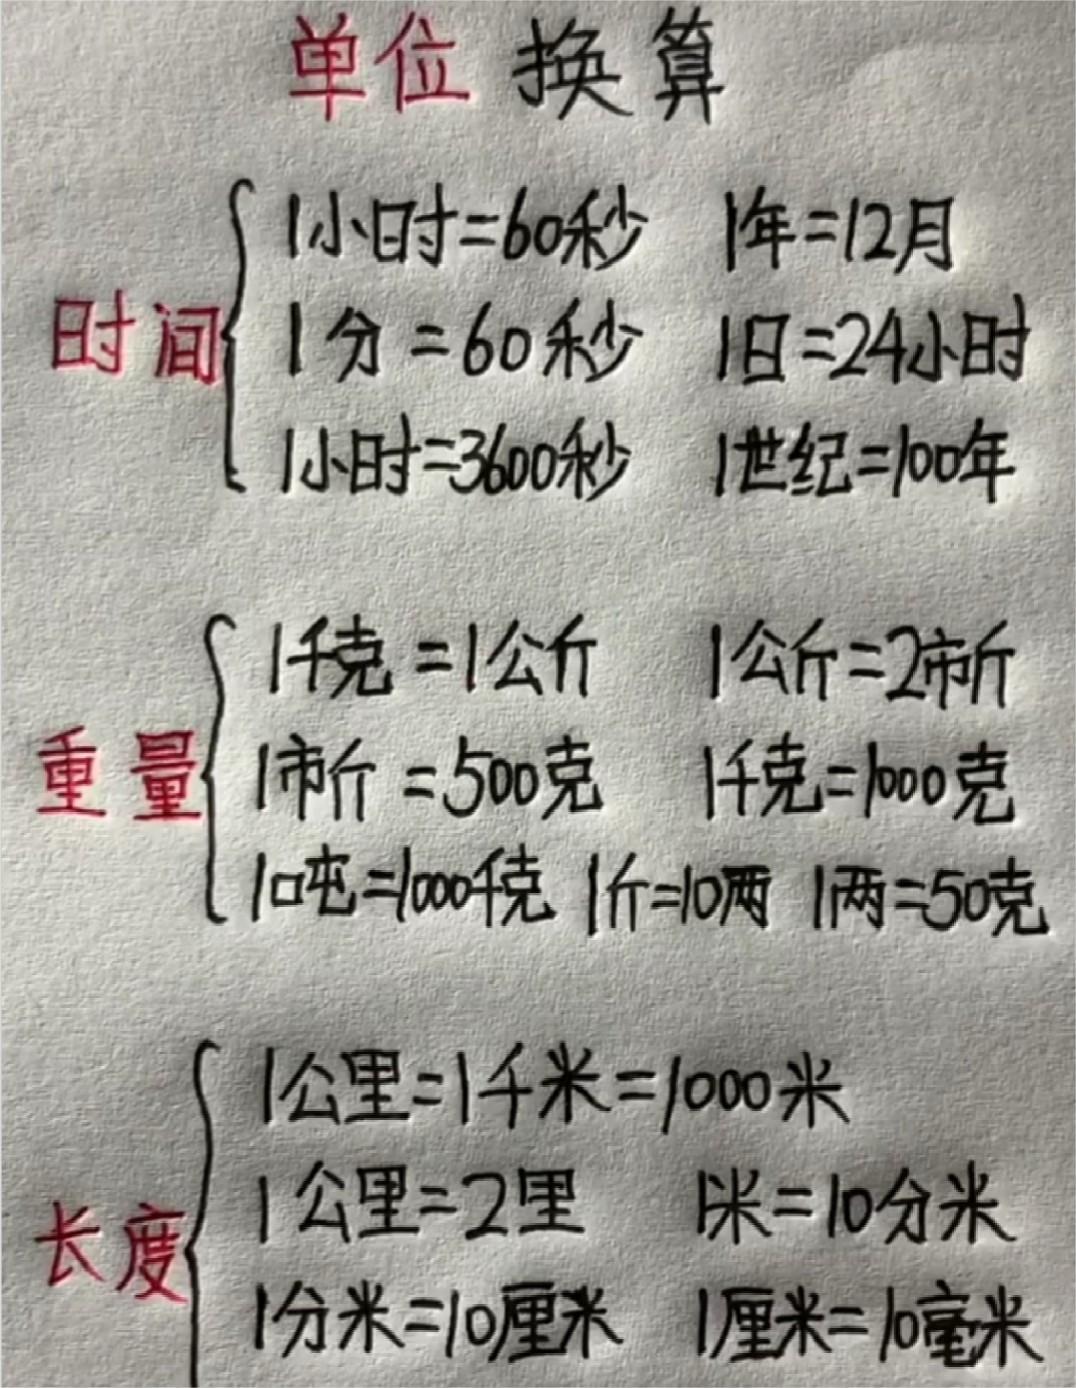 单位换算
时间
1小时=60秒 1年=12月
1分=60秒 1日=24小时
1小时=3600秒 1世纪=100年
重量
1千克=1公斤 1公斤=2市斤
1市斤=500克 1千克=1000克
1吨=1000千克 1斤=10两 1两=50克
长度
1公里=1千米=1000米
1公里=2里 1米=10分米
1分米=10厘米 1厘米=10毫米